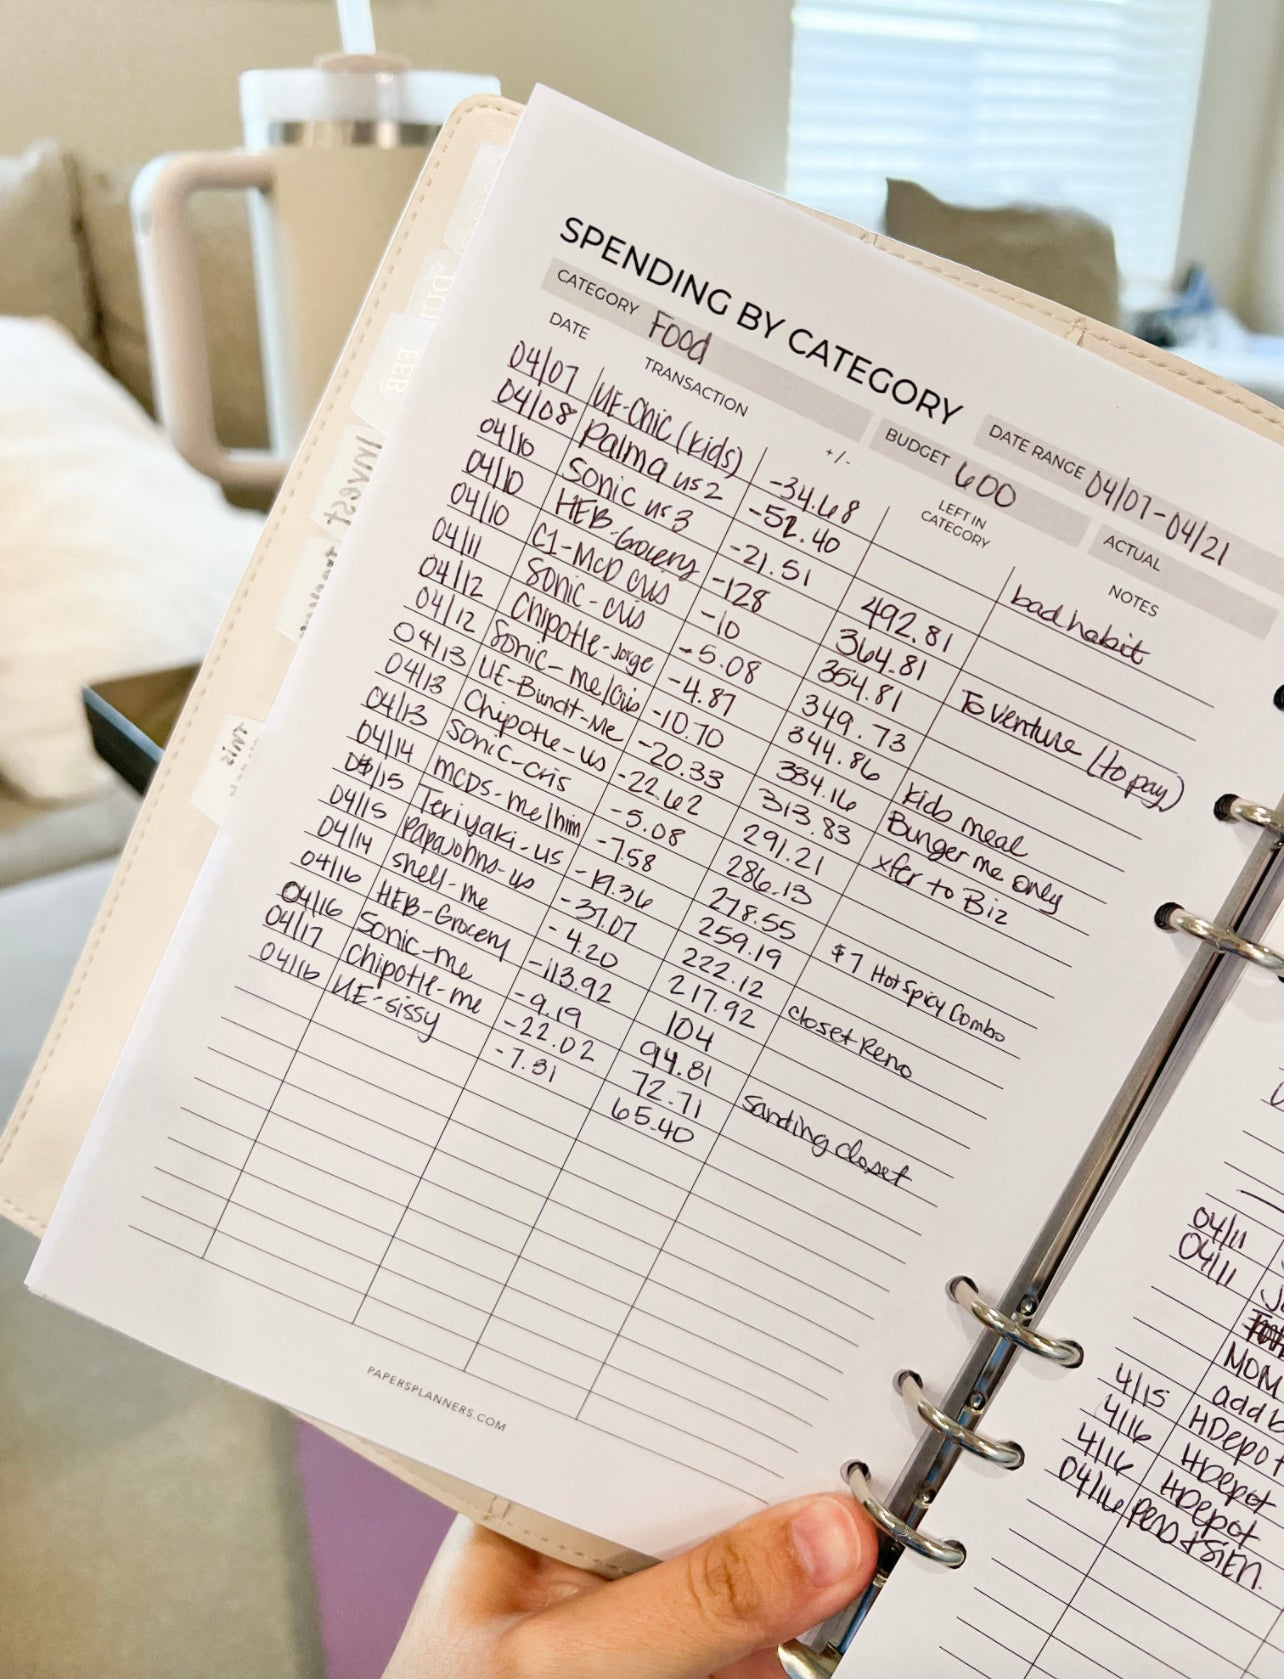 SPENDING BY CATEGORY
CATEGORY Food BUDGET 600 DATE RANGE 04/07-04/21
ACTUAL
DATE TRANSACTION +/- LEFT IN CATEGORY NOTES
04/07 UE-Chic (kids) -34.68 bad habit
04/08 Palma us 2 -52.40
04/10 Sonic us 3 -21.51 492.81
04/10 HEB-Grocery -128 364.81 To venture (to pay)
04/10 C1-McD cris -10 354.81
04/11 Sonic-cris -5.08 349.73
04/12 Chipotle-Jorge -4.87 344.86 kids meal
04/12 Sonic-me/cris -10.70 334.16 Bunger me only
04/13 UE-Bundt-Me -20.33 313.83 xfer to Biz
04/13 Chipotle-us -22.62 291.21
04/13 Sonic-cris -5.08 286.13
04/14 MCDS-me/him -7.58 278.55 $7 Hot Spicy Combo
04/15 Teriyaki-us -19.36 259.19
04/15 Papajohns-us -37.07 222.12 closet Reno
04/14 shell-me -4.20 217.92
04/16 HEB-Grocery -113.92 104
04/16 Sonic-me -9.19 94.81 sanding closet
04/17 Chipotle-me -22.02 72.71
04/16 UE-sissy -7.31 65.40
PAPERSPLANNERS.COM
04/11
04/11
MOM
add
4/15 HDepot
4/16 HDepot
4/16 HDepot
04/16
Invest
HEB
This